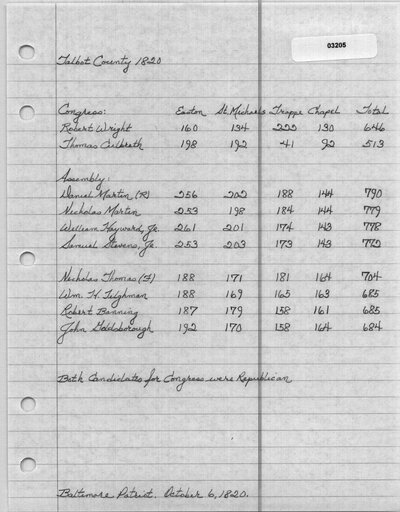 03205
Talbot County 1820
Congress: Easton St. Michaels Trappe Chapel Total
Robert Wright 160 134 222 130 646
Thomas Culbreth 198 192 41 92 513
Assembly:
Daniel Martin (R) 256 202 188 144 790
Nicholas Martin 253 198 184 144 779
William Hayward, Jr. 261 201 174 143 778
Samuel Stevens, Jr. 253 203 173 143 772
Nicholas Thomas (F) 188 171 181 164 704
Wm. H. Tilghman 188 169 165 163 685
Robert Banning 187 179 158 161 685
John Goldsborough 192 170 158 164 684
Both Candidates for Congress were Republican
Baltimore Patriot. October 6, 1820.